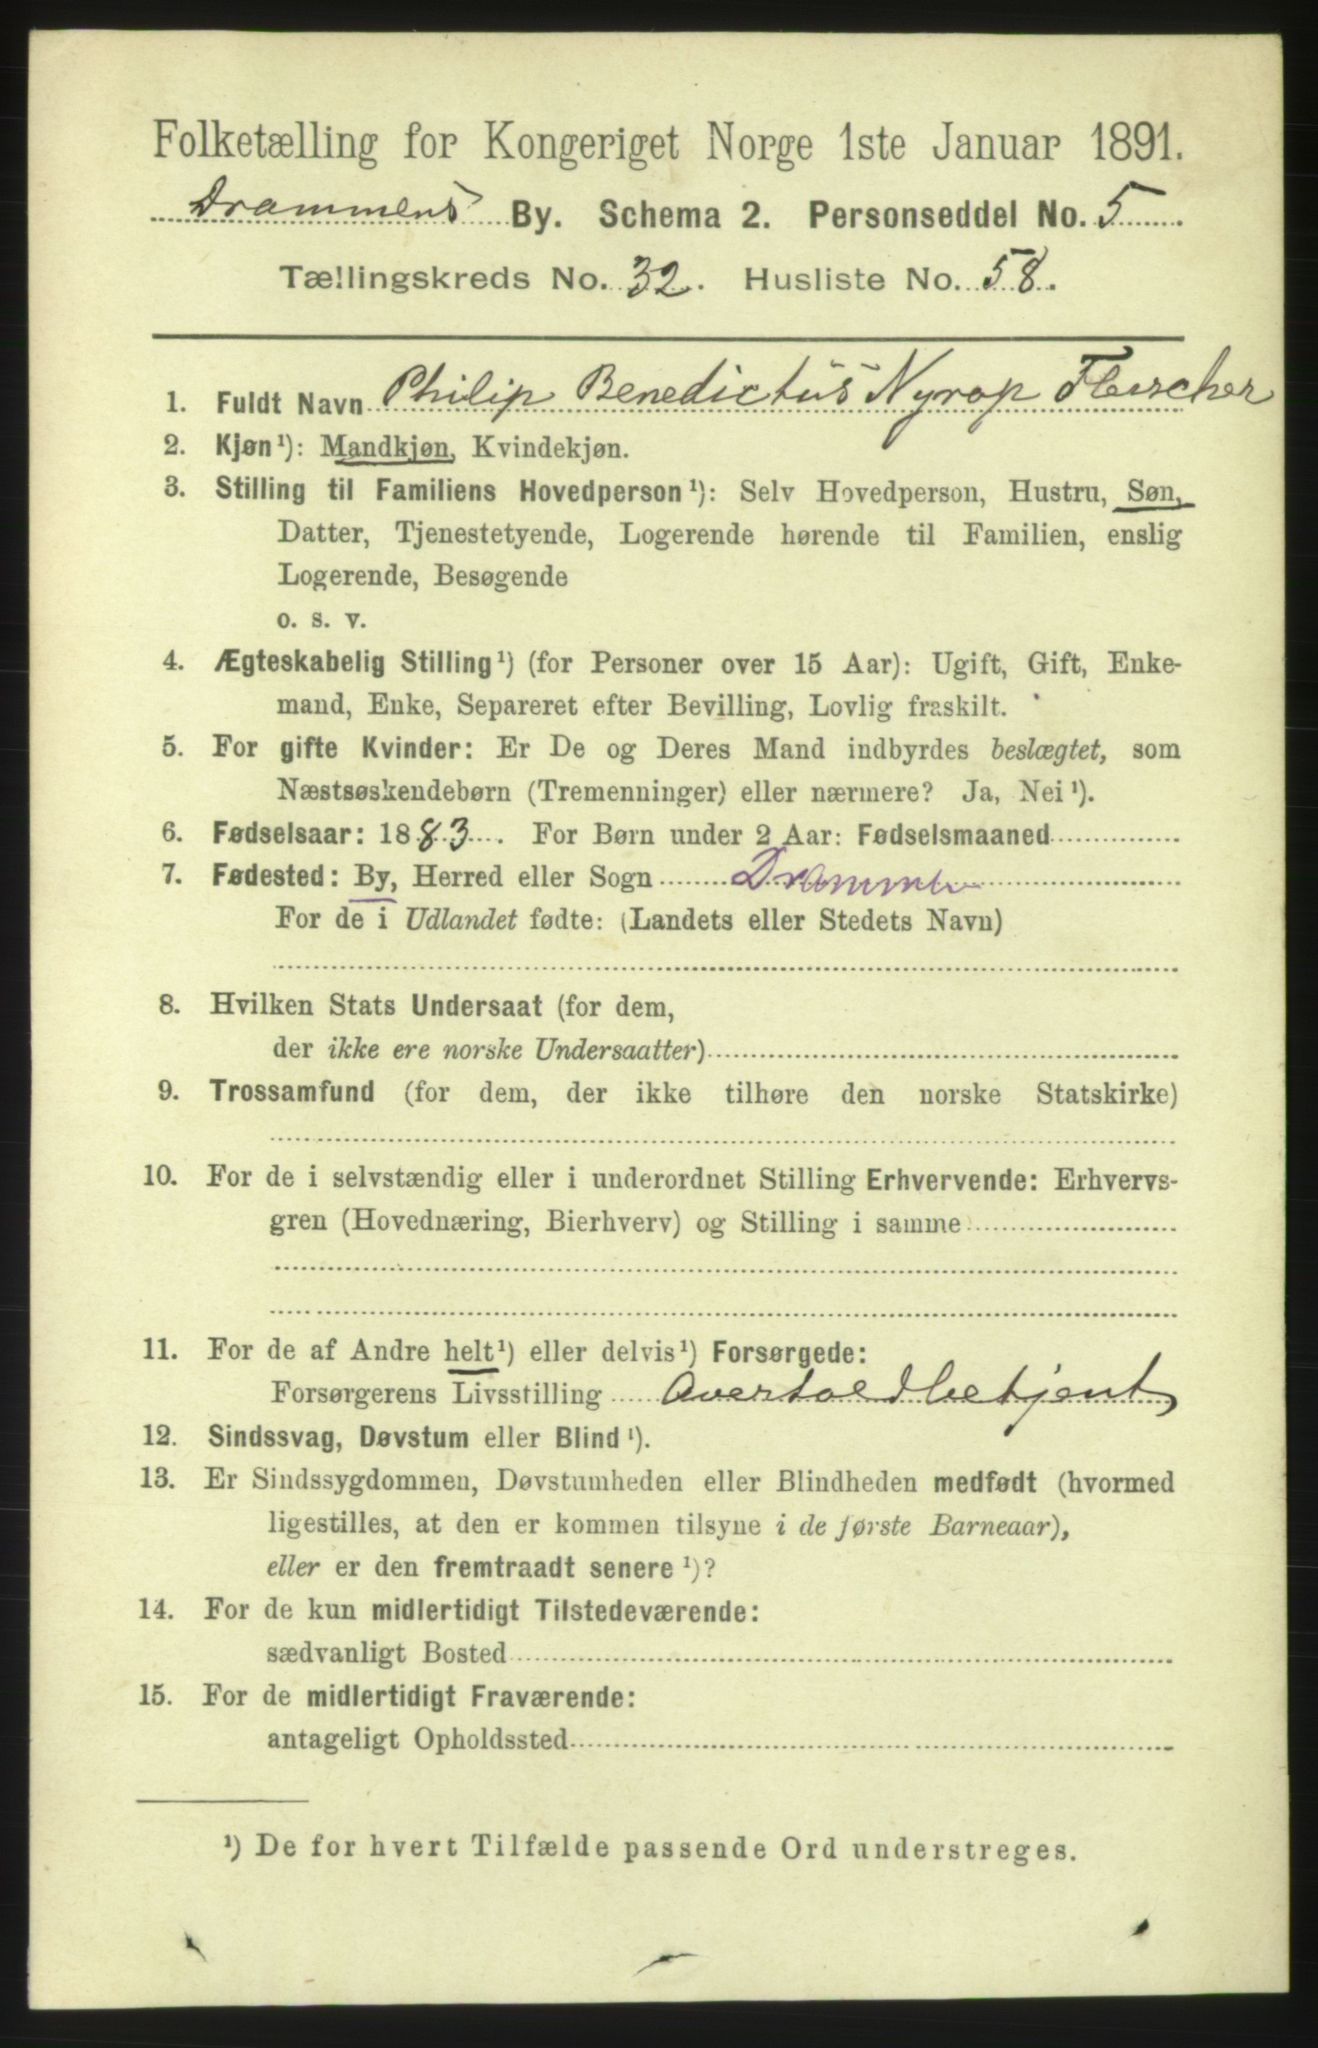 Folketælling for Kongeriget Norge 1ste Januar 1891.
Drammens By. Schema 2. Personseddel No. 5
Tællingskreds No. 32. Husliste No. 58.
1. Fuldt Navn Philip Benedictus Nyrop Fleischer
2. Kjøn¹): Mandkjøn, Kvindekjøn.
3. Stilling til Familiens Hovedperson¹): Selv Hovedperson, Hustru, Søn,
Datter, Tjenestetyende, Logerende hørende til Familien, enslig
Logerende, Besøgende
o. s. v.
4. Ægteskabelig Stilling¹) (for Personer over 15 Aar): Ugift, Gift, Enke-
mand, Enke, Separeret efter Bevilling, Lovlig fraskilt.
5. For gifte Kvinder: Er De og Deres Mand indbyrdes beslægtet, som
Næstsøskendebørn (Tremenninger) eller nærmere? Ja, Nei¹).
6. Fødselsaar: 1883. For Børn under 2 Aar: Fødselsmaaned
7. Fødested: By, Herred eller Sogn Drammen
For de i Udlandet fødte: (Landets eller Stedets Navn)
8. Hvilken Stats Undersaat (for dem,
der ikke ere norske Undersaatter)
9. Trossamfund (for dem, der ikke tilhøre den norske Statskirke)
10. For de i selvstændig eller i underordnet Stilling Erhvervende: Erhvervs-
gren (Hovednæring, Bierhverv) og Stilling i samme
11. For de af Andre helt¹) eller delvis¹) Forsørgede:
Forsørgerens Livsstilling Overtoldbetjent
12. Sindssvag, Døvstum eller Blind¹).
13. Er Sindssygdommen, Døvstumheden eller Blindheden medfødt (hvormed
ligestilles, at den er kommen tilsyne i de første Barneaar),
eller er den fremtraadt senere¹)?
14. For de kun midlertidigt Tilstedeværende:
sædvanligt Bosted
15. For de midlertidigt Fraværende:
antageligt Opholdssted
¹) De for hvert Tilfælde passende Ord understreges.